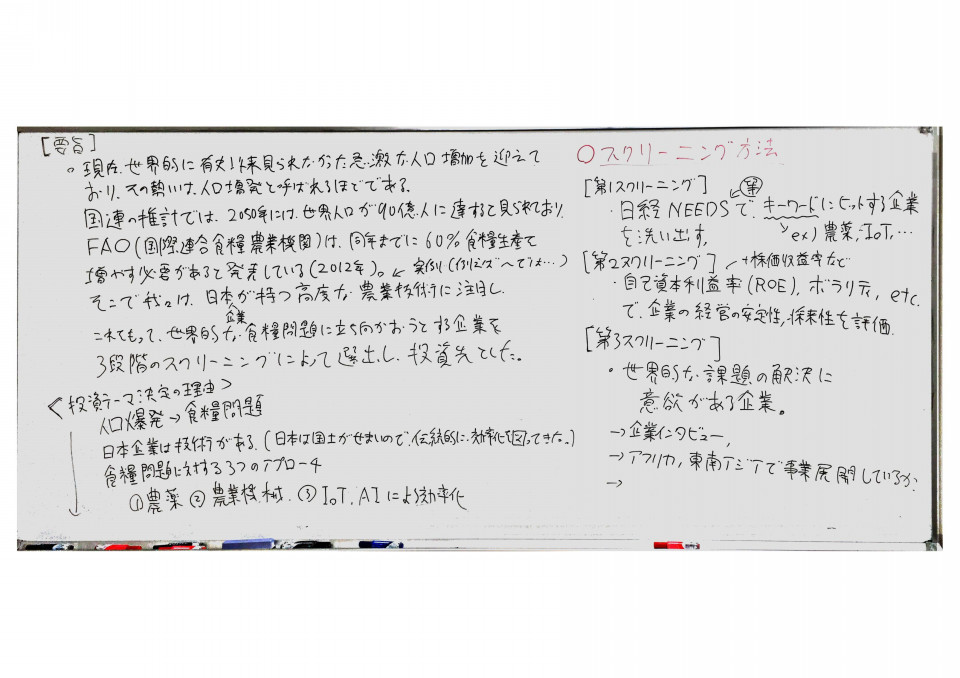 [要旨]
。現在、世界的に有史以来見られなかった急激な人口増加を迎えて
おり、その勢いは、人口爆発と呼ばれるほどである。
国連の推計では、2050年には、世界人口が90億人に達すると見られており
FAO(国際連合食糧農業機関)は、同年までに60%食糧生産を
増やす必要があると発表している(2012年)。← 実例(
そこで我々は、日本が持つ高度な農業技術に注目し、
企業
これをもって、世界的な食糧問題に立ち向かおうとする企業を
3段階のスクリーニングによって選出し、投資先とした。
<投資テーマ決定の理由>
人口爆発→食糧問題
日本企業は技術がある。(日本は国土がせまいので、伝統的に効率化を図ってきた。)
食糧問題に対する3つのアプローチ
①農薬 ②農業機械、③IoT、AIによる効率化
○スクリーニング方法
[第1スクリーニング]
・日経NEEDSで、キーワードにヒットする企業
を洗い出す。
ex) 農薬、IoT、…
[第2スクリーニング] +株価収益率など
・自己資本利益率(ROE)、ボラリティ, etc.
で、企業の経営の安定性、将来性を評価.
[第3スクリーニング]
・世界的な課題の解決に
意欲がある企業。
→企業インタビュー,
→アフリカ,東南アジアで事業展開しているか.
→